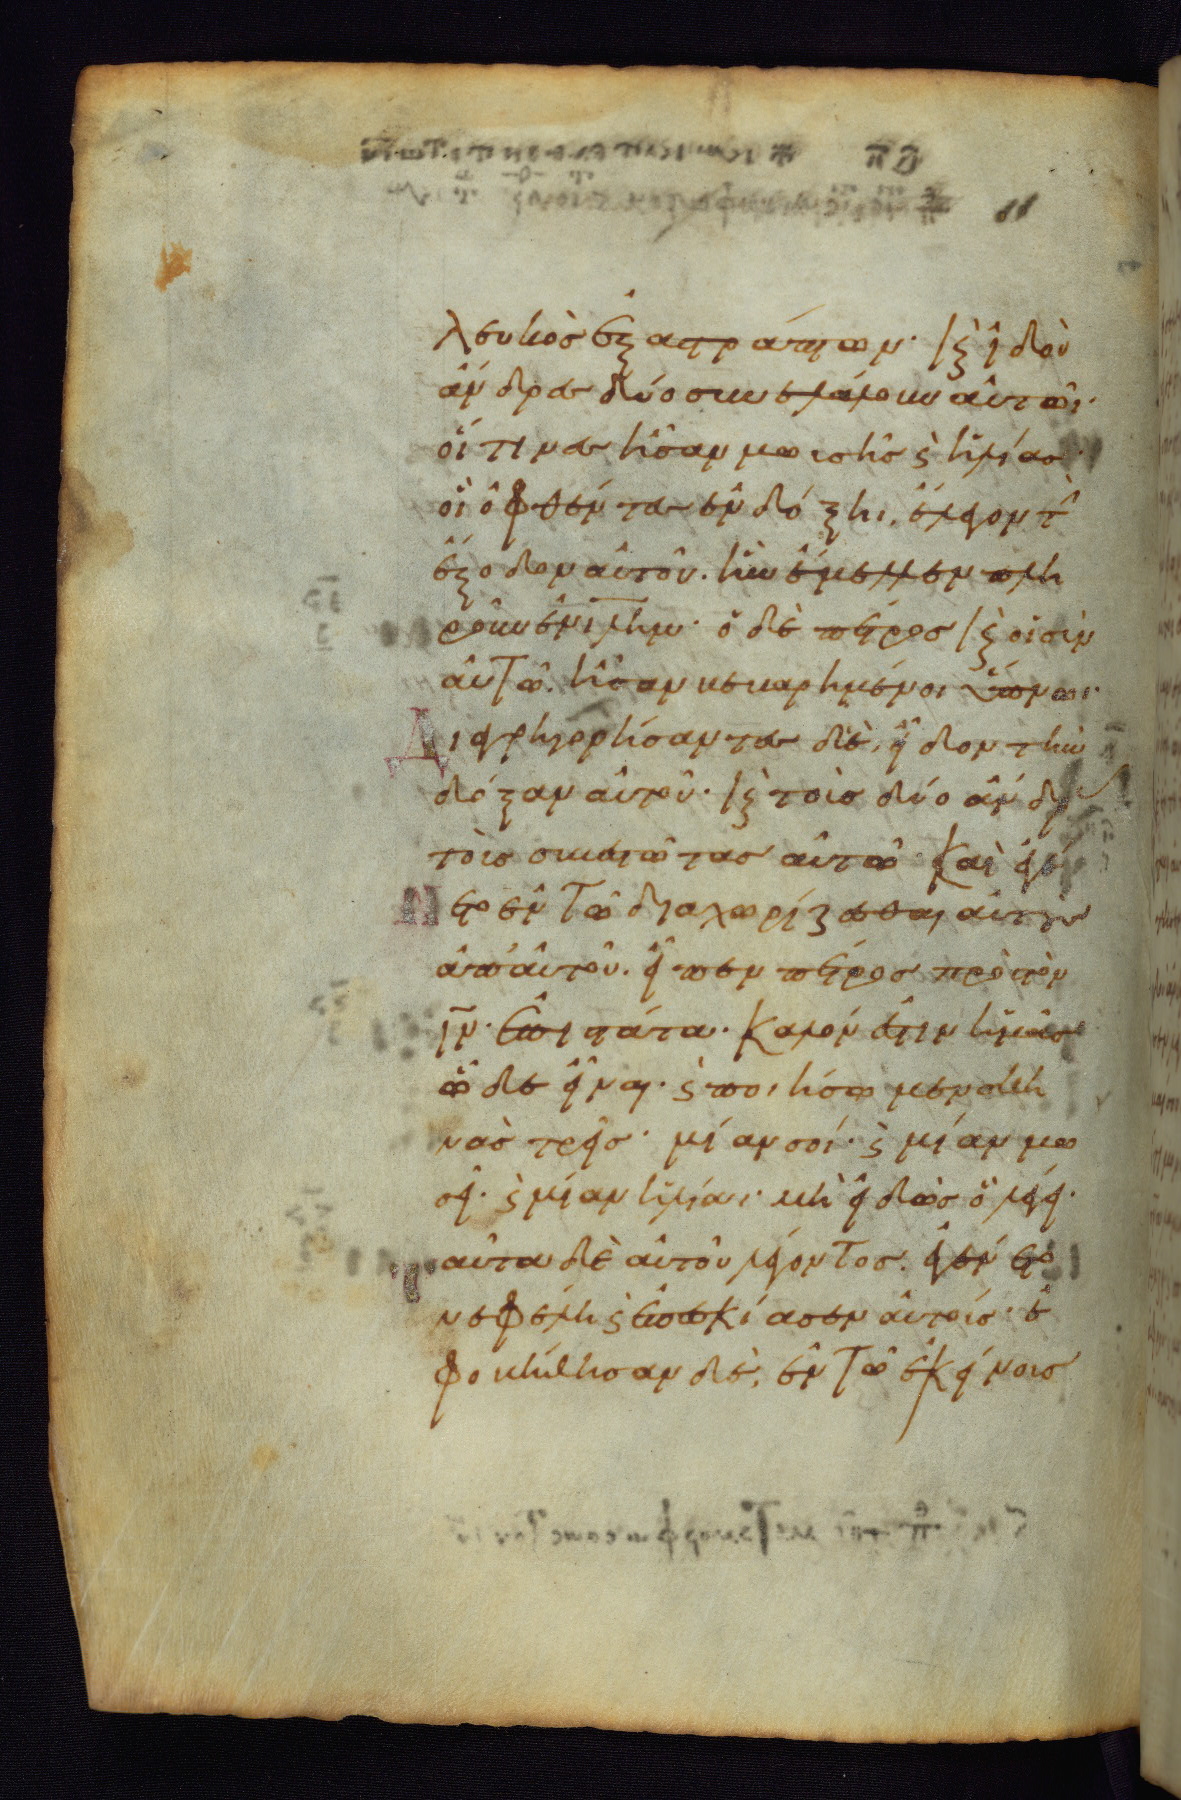 λευκὸσ ἐξαστράπτων· κ(αὶ) ἰδοὺ
ἄνδρεσ δύο συνελάλουν αὐτῶι·
οἵτινεσ ἦσαν μωυσῆσ κ(αὶ) ἠλίασ·
οἳ ὀφθέντεσ ἐν δόξηι, ἔλεγον τ(ὴν)
ἔξοδον αὐτοῦ. ἣν ἔμελλεν πλη
ροῦν ἐν ἰλημ· ὁ δὲ πέτροσ κ(αὶ) οἱ σὺν
αὐτῶ. ἦσαν βεβαρημένοι ὕπνωι·
Διαγρηγορήσαντεσ δὲ, εἶδον τὴν
δόξαν αὐτοῦ· κ(αὶ) τοὺσ δύο ἄνδρ
τοὺσ συνεστῶτασ αὐτῶ· καὶ ἐγέ
ετο ἐν τῶ διαχωρίζεσθαι αὐτοὺσ
ἀπ' αὐτοῦ. εἶπεν πέτροσ πρὸσ τὸν
ιν· ἐπιστάτα· καλόν ἐστιν ἡμᾶσ
ὧδε εἶναι· κ(αὶ) ποιήσωμεν σκη
νὰσ τρεῖσ· μίαν σοί· κ(αὶ) μίαν μω
σεῖ· κ(αὶ) μίαν ἠλίαι· μὴ εἰδὼσ ὃ λέγει·
αῦτα δὲ αὐτοῦ λέγοντοσ. ἐγένετο
νεφέλη κ(αὶ) ἐπεσκίασεν αὐτοῖσ· ἐ
φοβήθησαν δὲ, ἐν τῶ ἐκείνουσ